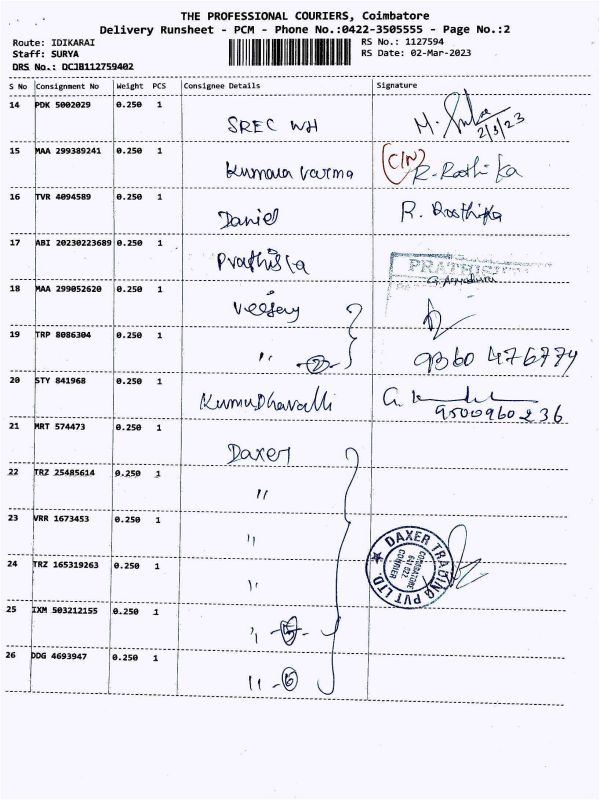 THE PROFESSIONAL COURIERS, Coimbatore
Delivery Runsheet - PCM - Phone No.:0422-3505555 - Page No.:2
Route: IDIKARAI
Staff: SURYA
DRS No.: DCJB112759402
RS No.: 1127594
RS Date: 02-Mar-2023
S No Consignment No Weight PCS Consignee Details Signature
14 PDK 5002029 0.250 1 SREC WH
2/3/23
15 MAA 299389241 0.250 1 Kumara varma (C/N) R. Rosthika
16 TVR 4094589 0.250 1 Daniel R. Rosthika
17 ABI 20230223689 0.250 1 Prathista
18 MAA 299052620 0.250 1
19 TRP 8086304 0.250 1 " 2 9360 476779
20 STY 841968 0.250 1 Kumudhavalli 9500960236
21 MRT 574473 0.250 1 Daxer
22 TRZ 25485614 0.250 1 "
23 VRR 1673453 0.250 1 "
24 TRZ 165319263 0.250 1 "
DAXER TRADING PVT LTD. ★
COIMBATORE
641 022
25 IXM 503212155 0.250 1 "
26 DDG 4693947 0.250 1 " - 6